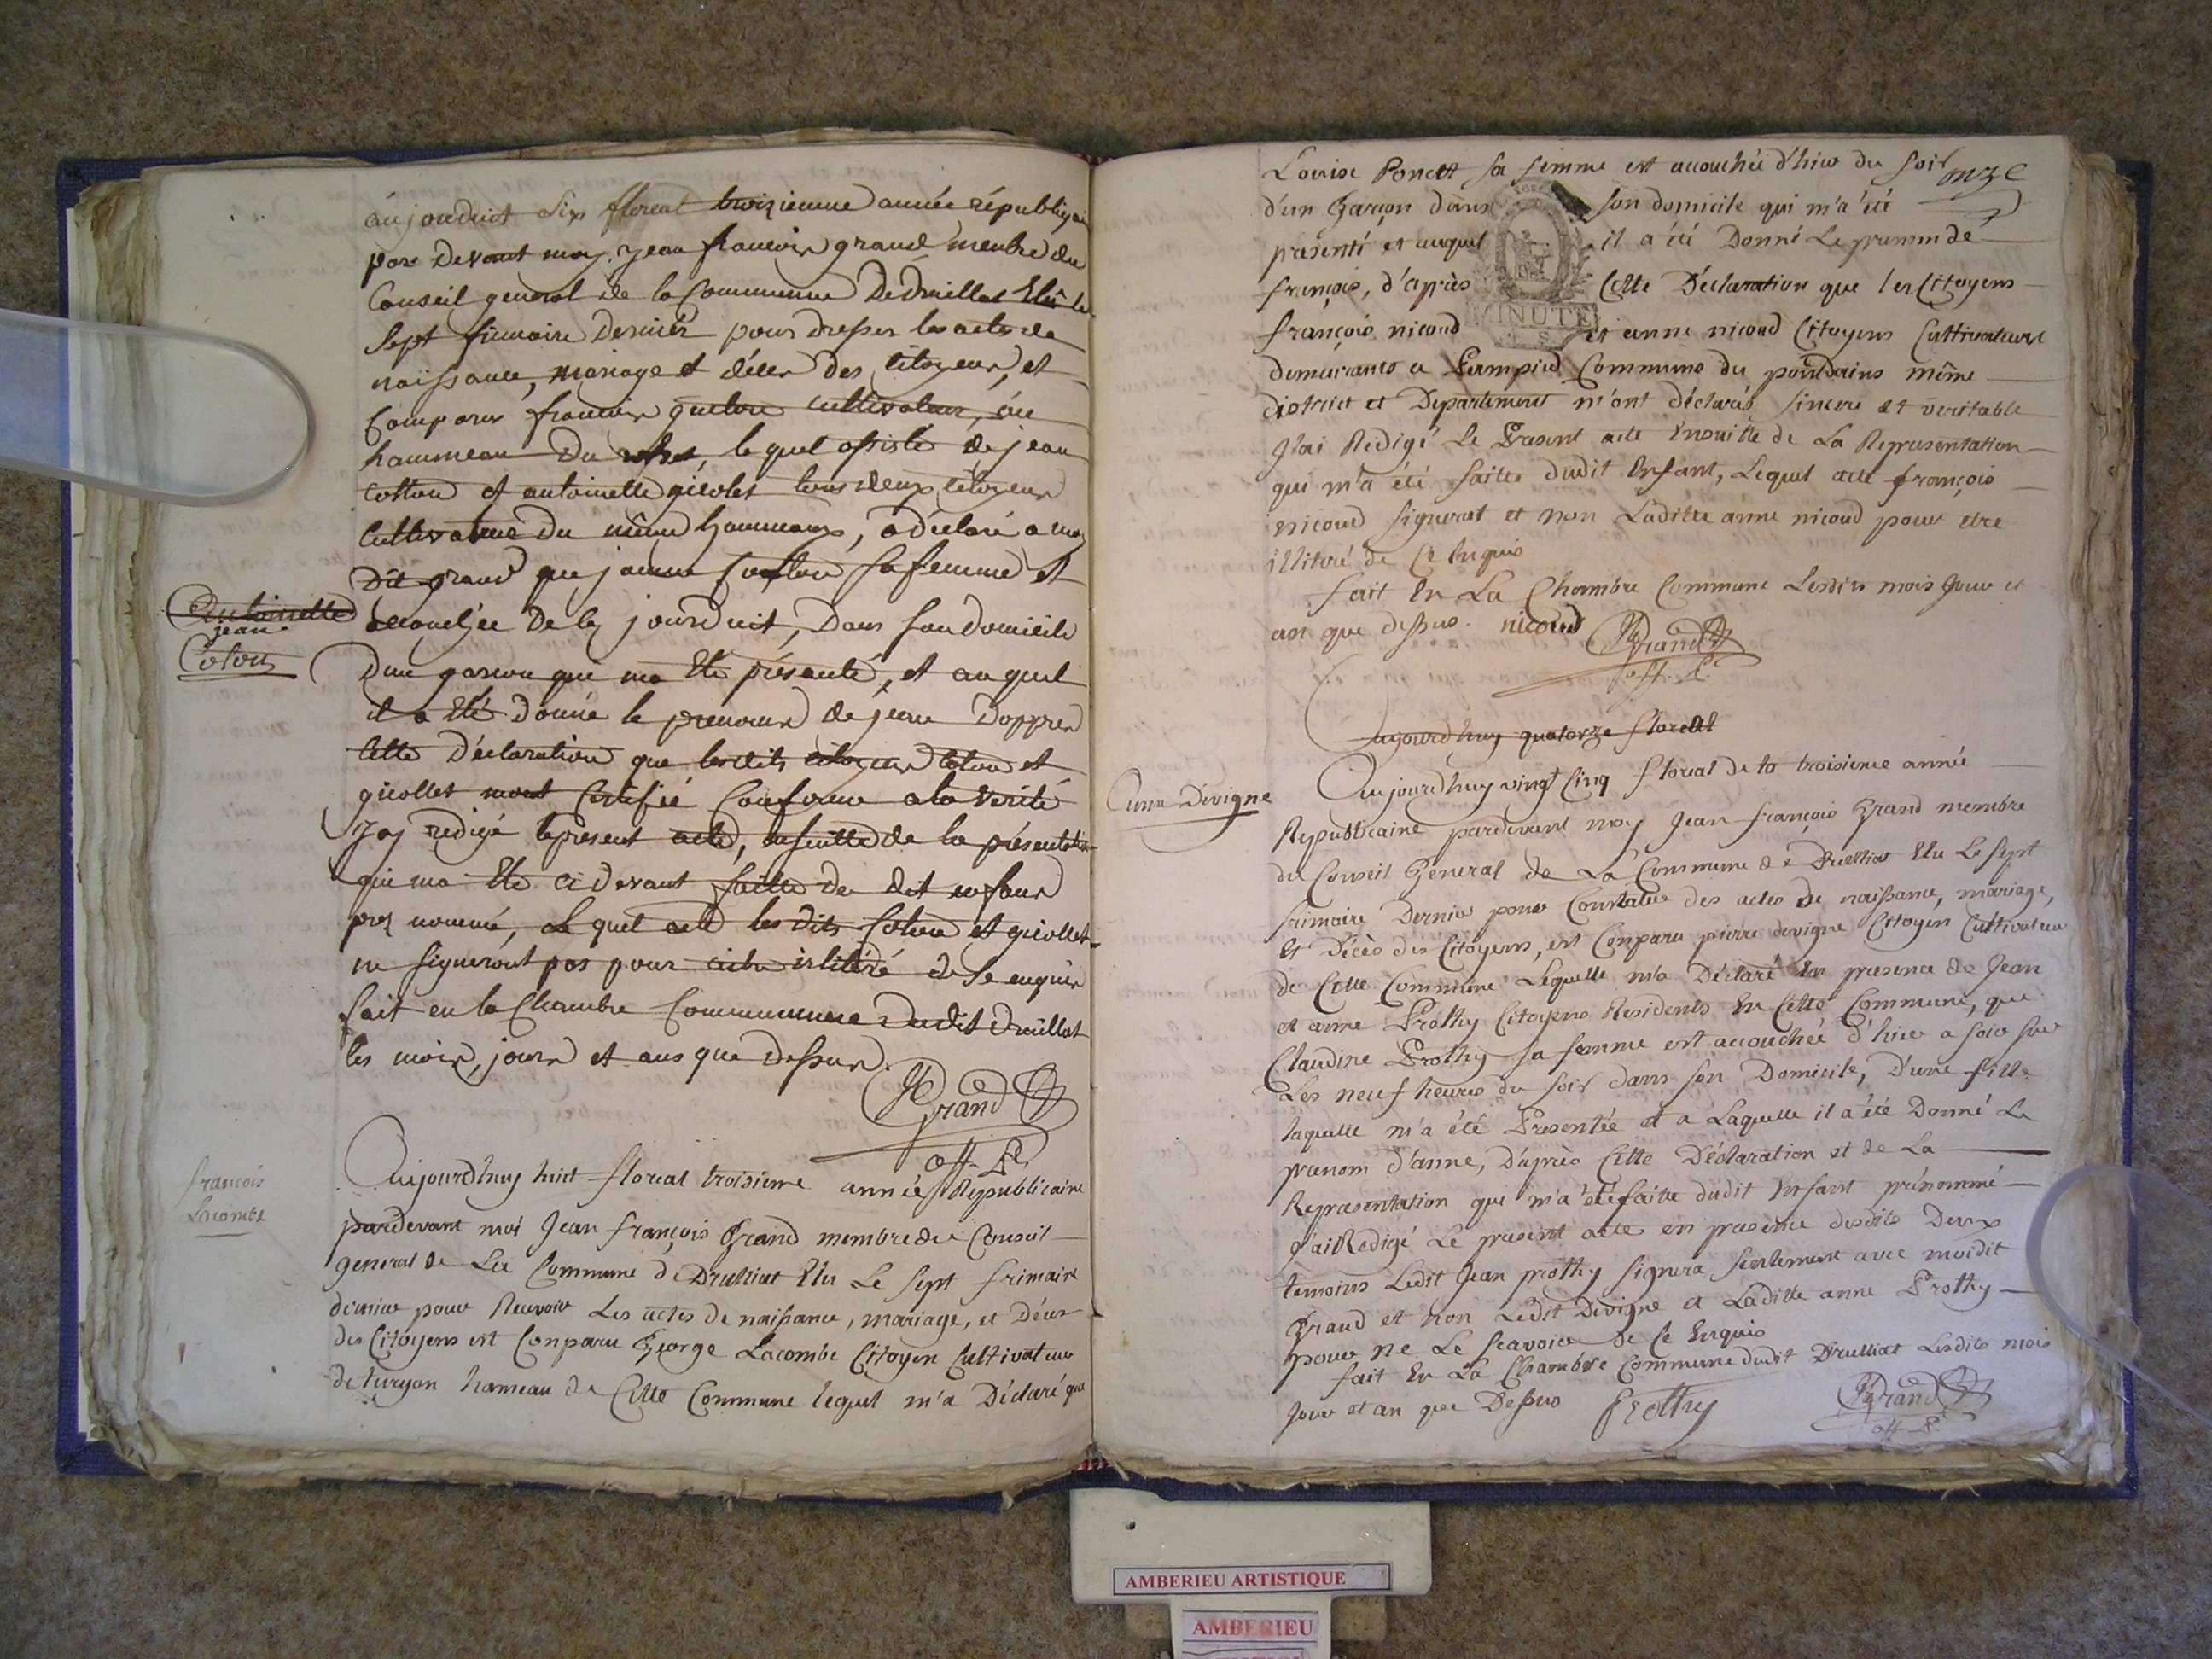 aujourduit six floreal troizieme année républiquai
par devant moy jean francois grand menbre du
Conseil general de la Commune De druillat Elû le
sept frimaire dernier pour dresser les actes de
naissance, mariage et décer des citoyens, et
Comparu francois cultivateur, au
hammeau Du, le quel assisté de jean
cottou et antoinette giolet tous deux citoyens
Cultivateurs Du même hammeaux, a déclaré a moy
Dit grand que jeanne sa femme et
Antoinette
jean
Coton
accouchée De ce jourduit, Dans son domicile
Dun garson qui ma Eté présenté, et au quel
il a Eté Donné le prenom de jean Dappres
cette Déclaration que lesdits citoyens coton et
giollet mont Certifié Conforme a la verité
Jay redigé le present acte, ensuitte de la présentation
qui ma Eté ci devant faitte du dit enfant
pre nommé, le quel acte les dits Coton et giollet
ne signeront pas pour estre illitéré de se enquis
fait en la Chambre Commune dudit druillat
les mois, jours et ans que dessus.
JfGrand
off. P.
francois
Lacombe
Aujourdhuy huit floreal troisieme année Republicaine
pardevant moi Jean françois Grand membre du Conseil
general de La Commune de Druilliat Elu Le sept frimaire
dernier pour Recevoir Les actes de naissance, mariage, et Déces
des Citoyens est Conparu George Lacombe Citoyen Cultivateur
de turgon hameau de Cette Commune lequel m'a Déclaré que
onze
Louise Poncet sa femme est accouchée d'hier du soir
d'un Garçon dans son domicile qui m'a été
présenté et auquel il a été Donné Le prenom de
françois, d'après Cette Déclaration que les Citoyens
MINUTE
françois nicoud et anne nicoud Citoyens Cultivateurs
demeurants a Rampied Commune du pontdains même
District et Departement m'ont déclarés sincere et veritable
J'ai Redigé Le Present acte Ensuitte de La Representation
qui m'a été faitte dudit Enfant, Lequel acte françois
nicoud signerat et non Laditte anne nicoud pour etre
illitéré de Ce Enquis
fait En La Chambre Commune Lesdits mois Jour et
an que dessus. nicoud JfGrand
off. P.
Aujourdhuy quatorze floreal
Anne Devigne
Aujourdhuy vingt Cinq floreal de la troisieme année
Republicaine pardevant moy Jean françois Grand membre
du Conseil General de La Commune de Druilliat Elu Le sept
frimaire Dernier pour Constater des actes de naissance, mariage,
Et Décès des Citoyens, est Conparu pierre devigne Citoyen Cultivateur
de Cette Commune Lequelle m'a Déclaré En presence de Jean
et anne Prothy Citoyens Residents En Cette Commune, que
Claudine Prothy sa femme est accouchée d'hier a soir sur
Les neuf heures du soir dans son Domicile, D'une fille
laquelle m'a été Presentée et a Laquelle il a été Donné Le
prenom d'anne, D'après Cette Déclaration et de La
Representation qui m'a été faitte dudit Enfant prénommé
J'ai Redigé Le present acte en presence desdits Deux
temoins Ledit Jean prothy signera seulement avec moidit
Grand et non Ledit Devigne et Laditte anne Prothy
pour ne Le sçavoir de Ce Enquis
fait En La Chambre Commune dudit Druilliat Lesdits mois
Jour et an que Dessus Prothy JfGrand
off. P.
AMBERIEU ARTISTIQUE
AMBERIEU